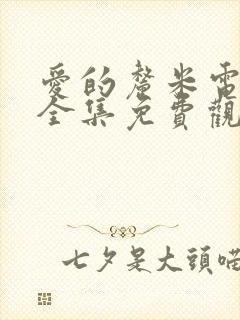 愛的釐米電
全集免費觀
七夕是大頭喵